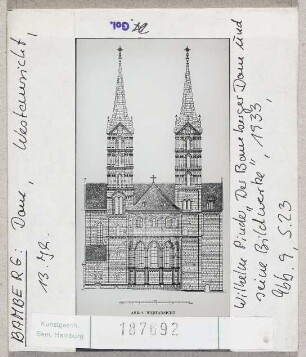 Gol.
BAMBERG: Dom, Westansicht,
13. Jh.
ABB. 9 WESTANSICHT
Kunstgesch.
Sem. Hamburg
187692
Wilhelm Pinder, Der Bamberger Dom und
seine Bildwerke", 1933,
Abb. 9, S. 23